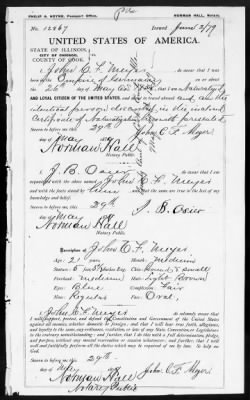 PHILIP A. HOYNE, Passport Office.
NORMAN HALL, Notary.
No. 12867
Issued June 2/79
UNITED STATES OF AMERICA.
STATE OF ILLINOIS,
CITY OF CHICAGO,
COUNTY OF COOK.
I, John C. F. Meyer do swear that I was
born in Empire of Germany on or about the
26th day of May
AND LOYAL CITIZEN OF THE UNITED STATES, and about to travel abroad and am the
identical person described in the
Certificate of Naturalization herewith presented
Sworn to before me this 29th
day of May John C F Meyer
Norman Hall
Notary Public.
I, J. B.
do swear that I am
acquainted with the above named John C. F. Meyer
and with the facts stated by him and that the same are true to the best of my
knowledge and belief.
Sworn to before me this 29th
day of May
Norman Hall
Notary Public.
Description of John C. F. Meyer
Age: 21 years
Mouth: medium
Stature: 5 feet inches Eng.
Chin: Round & small
Forehead: medium
Hair: Light Brown
Eyes: Blue
Complexion: Fair
Nose: Regular
Face: Oval
I, John C. F. Meyer do solemnly swear that
I will support, protect, and defend the Constitution and Government of the United States
against all enemies, whether domestic or foreign; and that I will bear true faith, allegiance
and loyalty to the same, any ordinance, resolution or law of any State Convention or Legislature
to the contrary notwithstanding; and further, that I do this with a full determination, pledge
and purpose, without any mental reservation or evasion whatsoever; and further, that I will
well and faithfully perform all the duties which may be required of me by law. So help me God.
Sworn to before me this 29th
day of May John C F Meyer
Norman Hall
Notary Public